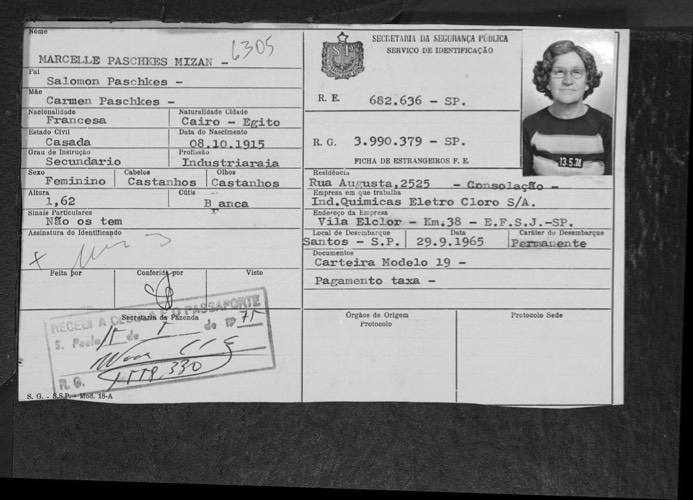 Nome
MARCELLE PASCHKES MIZAN - 6305
Pai
Salomon Paschkes -
Mãe
Carmen Paschkes -
Nacionalidade Naturalidade Cidade
Francesa Cairo - Egito
Estado Civil Data do Nascimento
Casada 08.10.1915
Grau de Instrução Profissão
Secundario Industriaraia
Sexo Cabelos Olhos
Feminino Castanhos Castanhos
Altura Cútis
1,62 B anca
Sinais Particulares
Não os tem
Assinatura do Identificando
Feita por Conferida por Visto
Secretaria da Fazenda
RECEBI A CEDULA E O PASSAPORTE
S. Paulo de de 19 75
R. G.
S. G. - S.S.P. - Mod. 18-A
SECRETARIA DA SEGURANÇA PÚBLICA
SERVIÇO DE IDENTIFICAÇÃO
R. E. 682.636 - SP.
R. G. 3.990.379 - SP.
FICHA DE ESTRANGEIROS F. E.
13.5.74
Residência
Rua Augusta,2525 - Consolação -
Empresa em que trabalha
Ind.Quimicas Eletro Cloro S/A.
Endereço da Empresa
Vila Elclor - Km.38 - E.F.S.J.-SP.
Local de Desembarque Data Caráter do Desembarque
Santos - S.P. 29.9.1965 Permanente
Documentos
Carteira Modelo 19 -
Pagamento taxa -
Órgãos de Origem Protocolo Sede
Protocolo